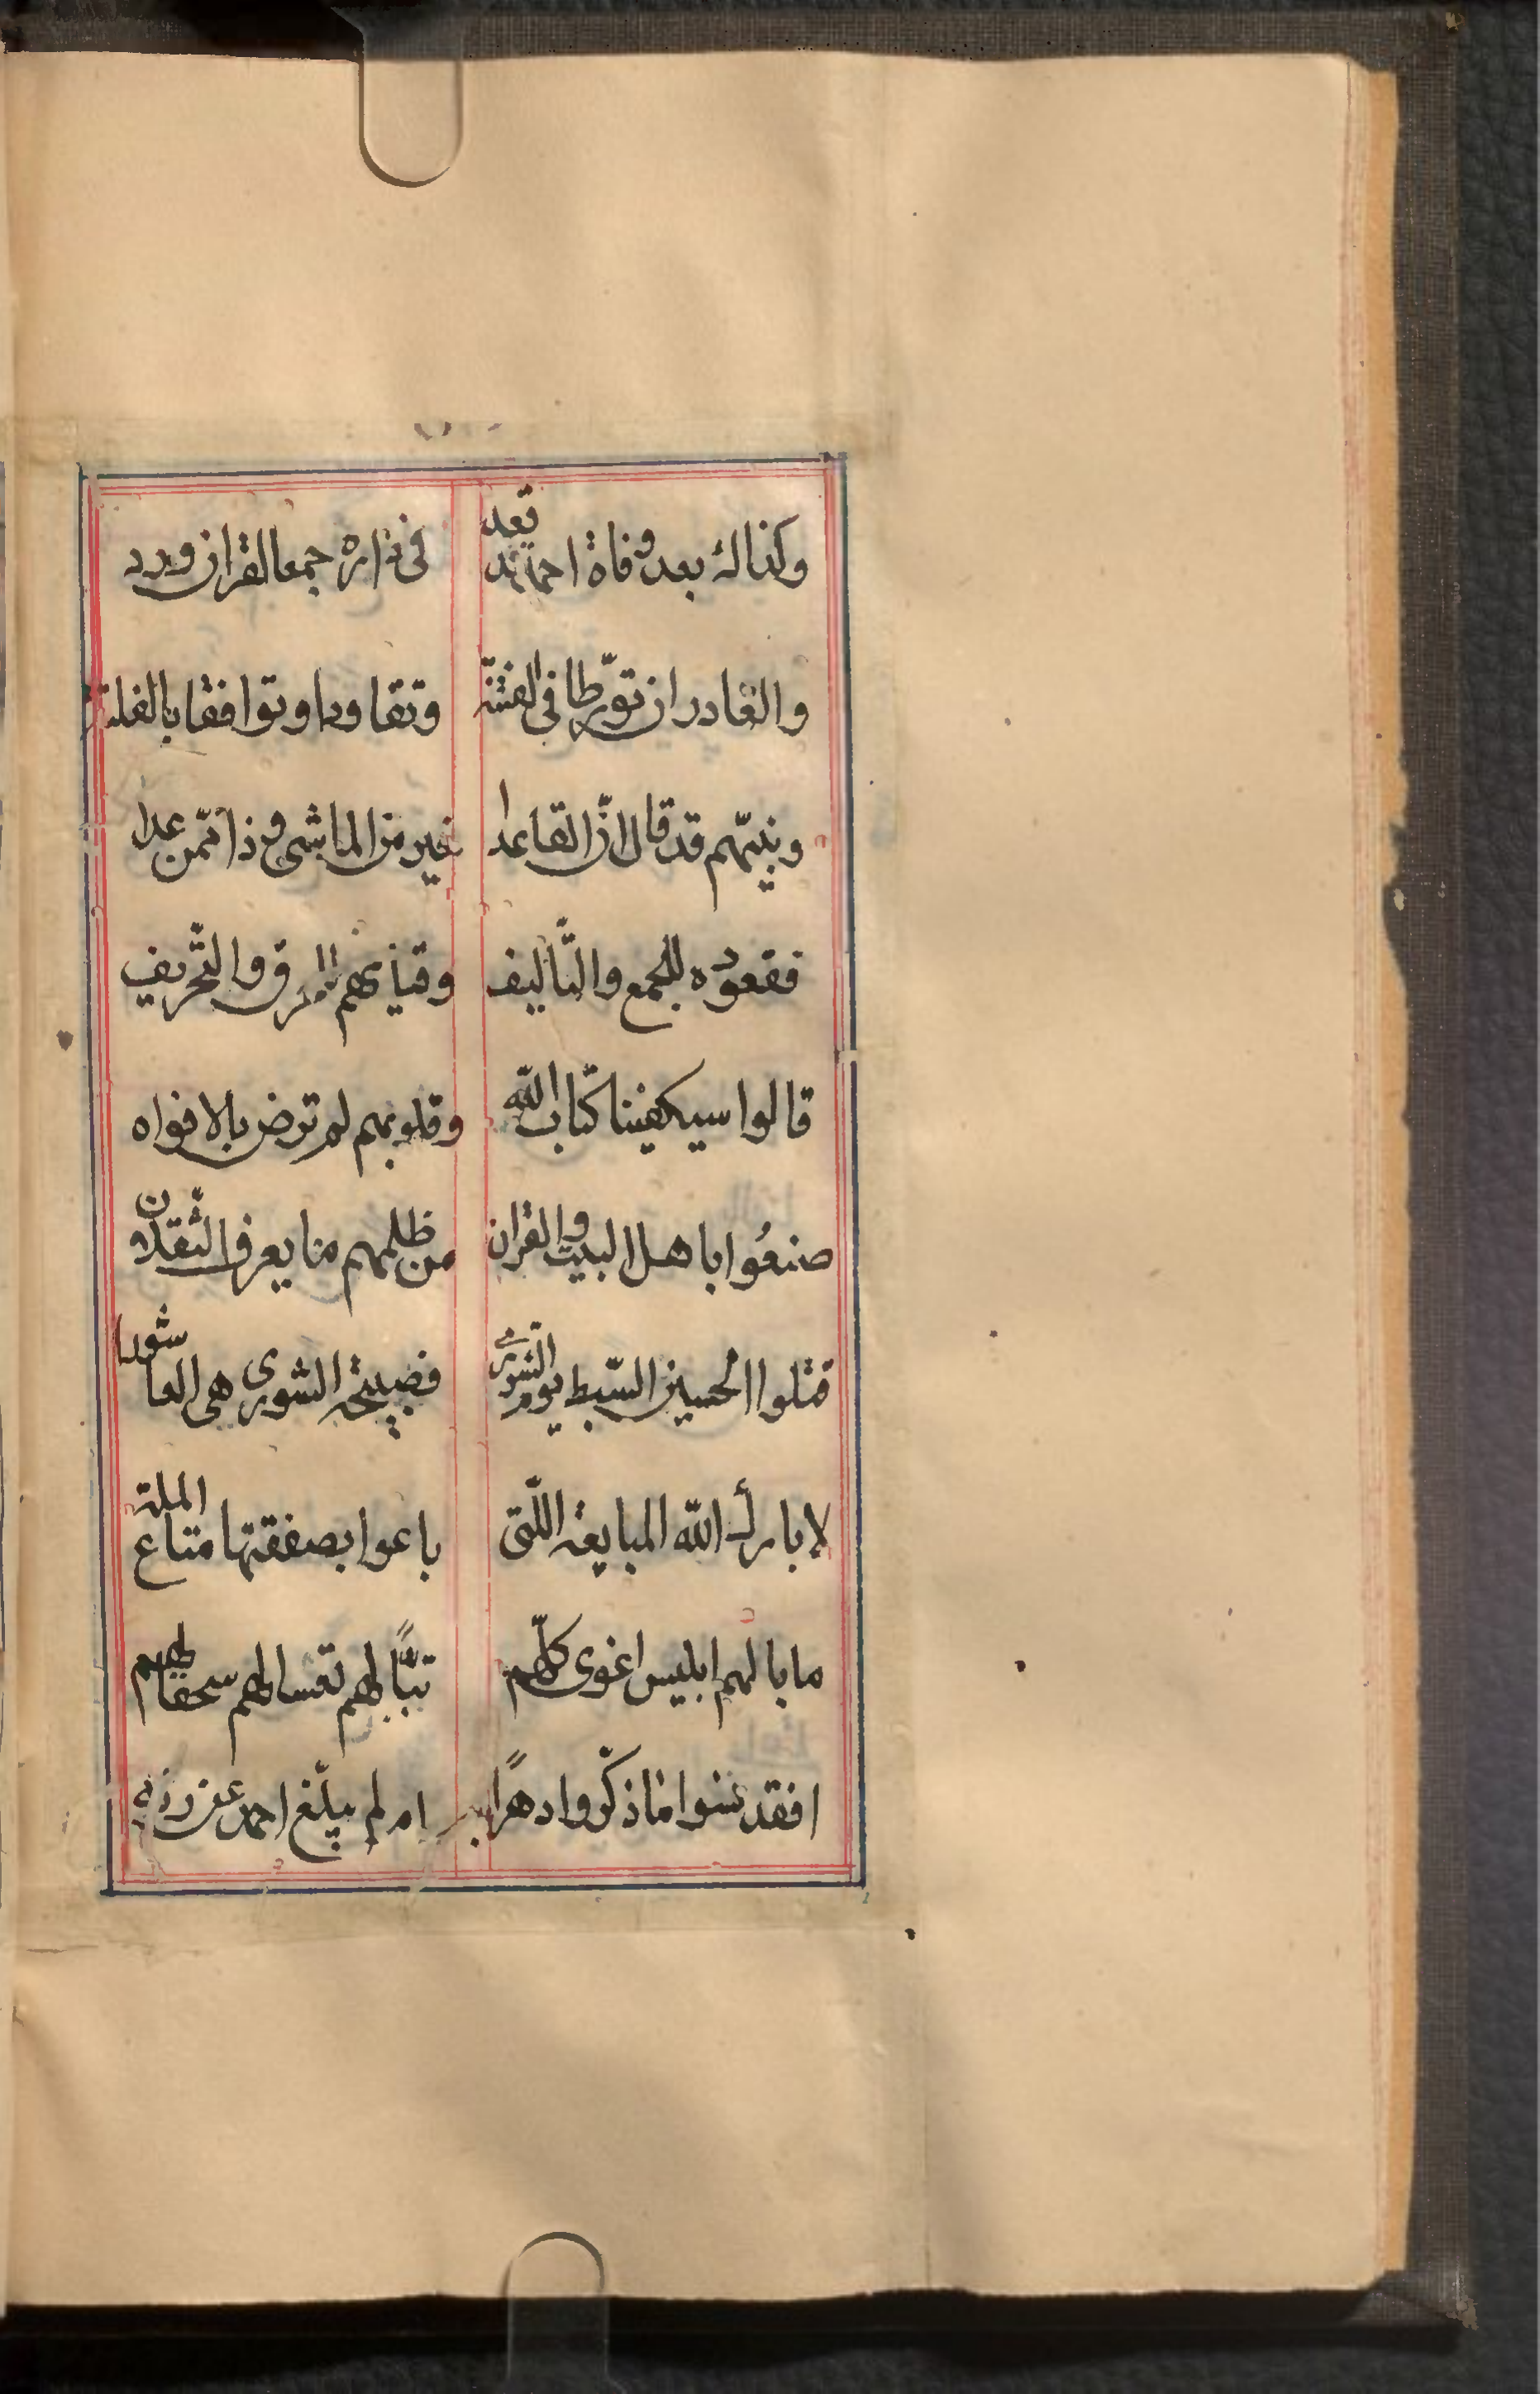 وكذاك بعد وفاة احمد قد قعد في داره جمعا القران ورد
والغادران تورّطا فى الفتنة وتقاودا وتوافقا بالفلتة
ونبيّهم قد قال انّ القاعدا خير من الماشى وذا ممّن عدا
فقعوده للجمع والتّأليف وقيامهم للحرق والتّحريف
قالوا سيكفينا كتاب اللّه وقلوبهم لم ترض بالافواه
صنعُوا باهل البيت والقران من ظلمهم ما يعرف الثّقلان
قتلوا الحسين السّبط يوم الشورى فصبيحة الشورى هى العاشورا
لا بارك اللّه المبايعة اللّتى باعوا بصفقتها متاع الملة
ما بالهم ابليس اغوى كلّهم تبّاً لهم تعسا لهم سحقا لهم
افقد نسوا ما ذكّروا دهرًا به ام لم يبلّغ احمد عن ربّه